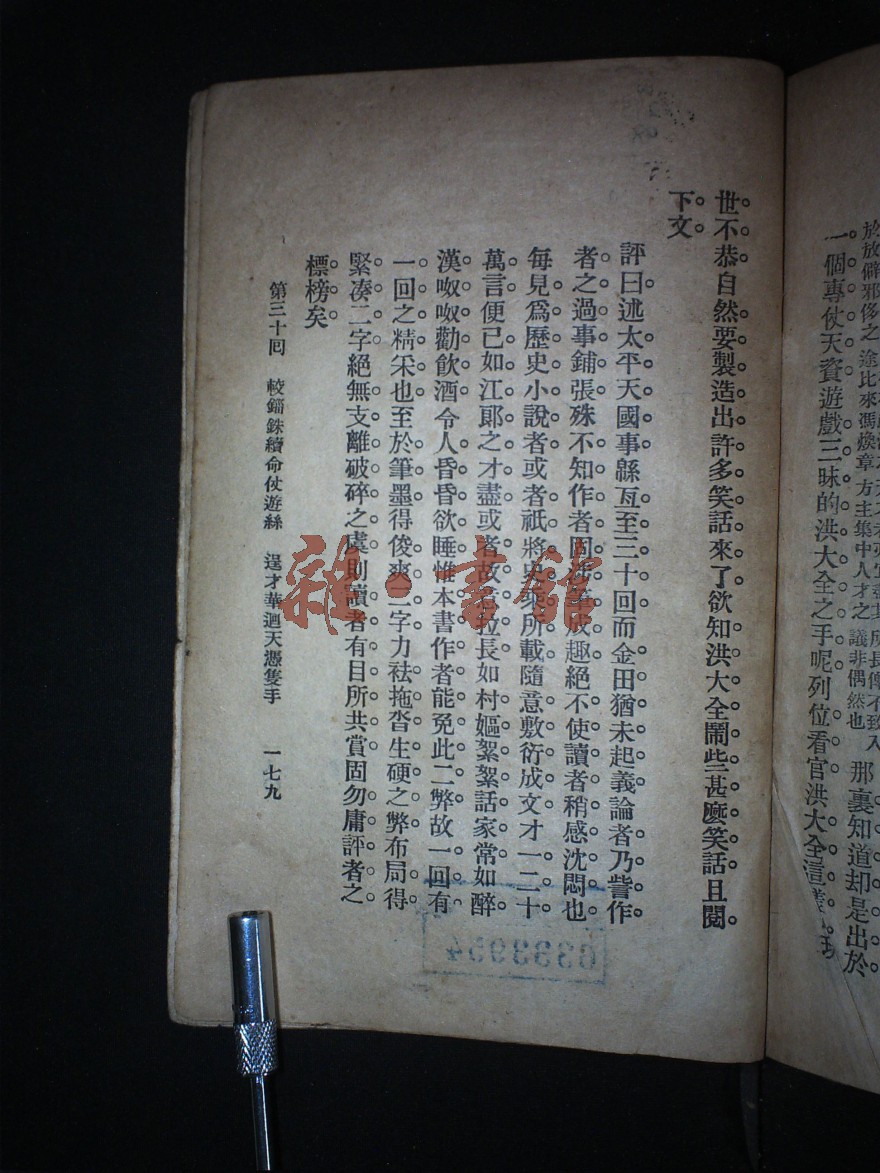 一個專仗天資遊戲三昧的洪大全之手呢列位看官洪大全這
世不恭自然要製造出許多笑話來了欲知洪大全鬧些甚麼笑話且閱
下文
評曰述太平天國事緜亙至三十回而金田猶未起義論者乃訾作
者之過事鋪張殊不知作者因成趣絕不使讀者稍感沈悶也
每見爲歷史小說者或者祇將史乘所載隨意敷衍成文才一二十
萬言便已如江郞之才盡或者故意拉長如村嫗絮絮話家常如醉
漢呶呶勸飮酒令人昏昏欲睡惟本書作者能免此二弊故一回有
一回之精采也至於筆墨得俊爽二字力袪拖沓生硬之弊布局得
緊湊二字絕無支離破碎之處則讀者有目所共賞固勿庸評者之
標榜矣
第三十回 較錙銖續命仗遊絲 逞才華迴天憑隻手 一七九
雜·書館
6333954